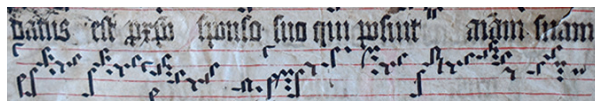 datus est xpo sponso suo qui posuit aiam suam